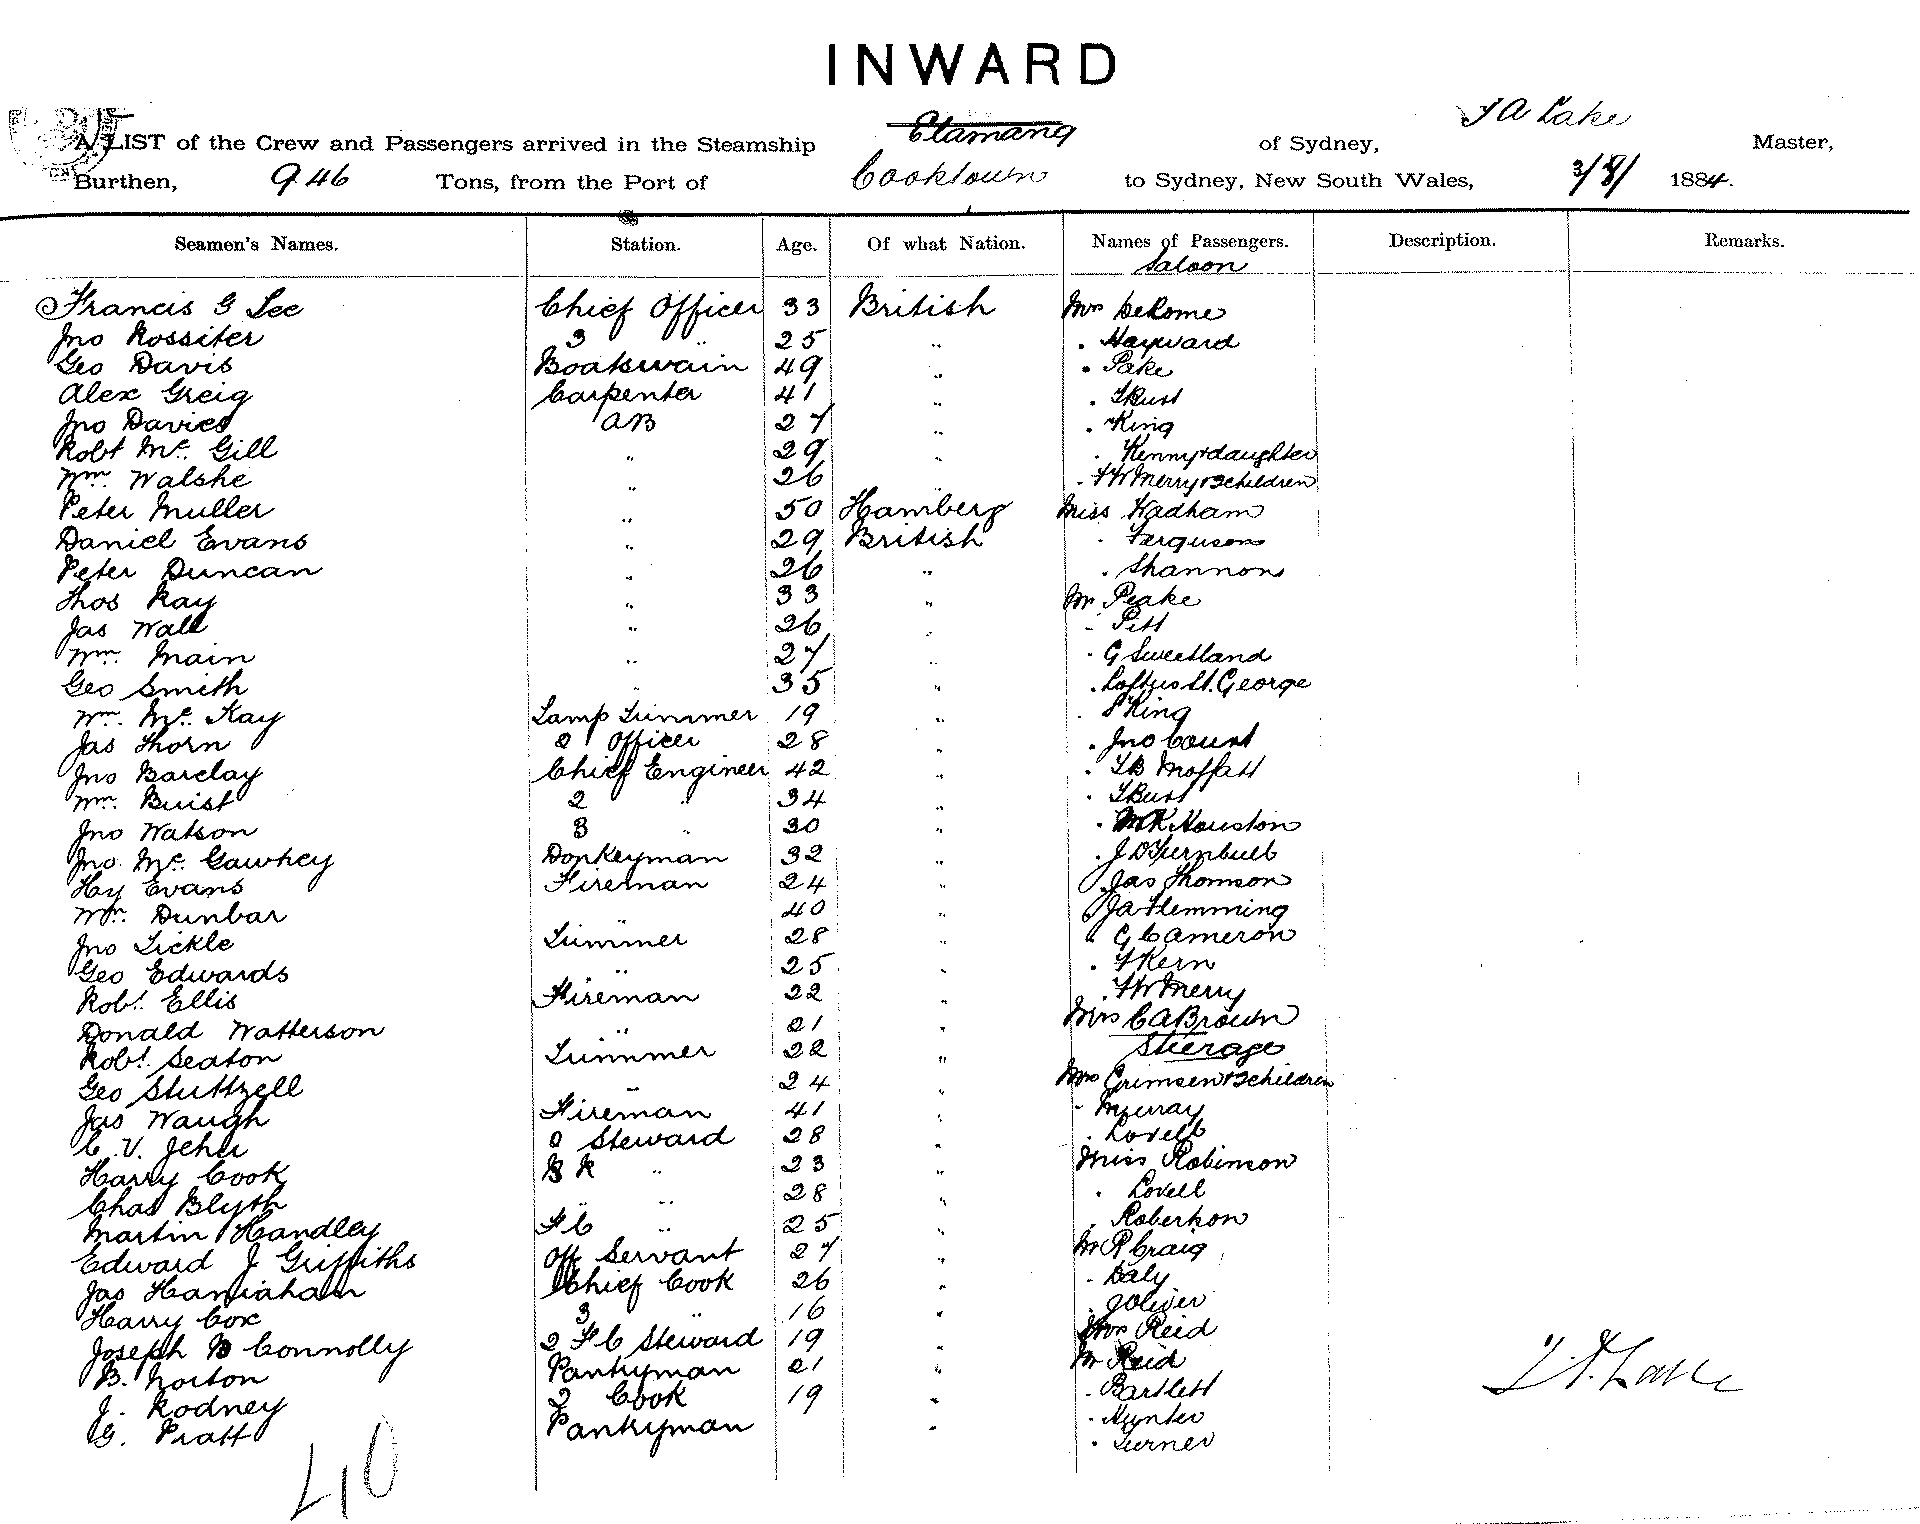 INWARD
A LIST of the Crew and Passengers arrived in the Steamship Etamang of Sydney, J A Lake Master,
Burthen, 946 Tons, from the Port of Cooktown to Sydney, New South Wales, 3/8/ 1884.
Seamen's Names. Station. Age. Of what Nation. Names of Passengers. Description. Remarks.
Saloon
Francis G Lee Chief Officer 33 British Mrs DeRome
Jno Rossiter 3 " 25 " . Hayward
Geo Davis Boatswain 49 " . Pake
Alex Greig Carpenter 41 " . T Rust
Jno Davies AB 27 " . King
Robt Mc Gill " 29 " . Kenny & daughter
Wm Walshe " 26 " . F W Merry & 3 children
Peter Muller " 50 Hamberg Miss Wadham
Daniel Evans " 29 British . Ferguson
Peter Duncan " 26 " . Shannon
Thos Kay " 33 " Mr Peake
Jas Wall " 26 " . Pitt
Wm Main " 27 " . G Sweetland
Geo Smith " 35 " . Loftus St. George
Wm. Mc Kay Lamp Trimmer 19 " . King
Jas Thorn 2 Officer 28 " . Jno Count
Jno Barclay Chief Engineer 42 " . T B Moffatt
Wm. Buist 2 " 34 " . T Rust
Jno Watson 3 " 30 " . Houston
Jno. Mc Gawhey Donkeyman 32 " . J D Turnbull
Hy Evans Fireman 24 " . Jas Thomson
Wm. Dunbar " 40 " . J A Flemming
Jno Tickle Trimmer 28 " . G Cameron
Geo Edwards " 25 " . F Kern
Robt. Ellis Fireman 22 " . F W Merry
Donald Watterson " 21 " Mrs C A Brown
Robt. Seaton Trimmer 22 " Steerage
Geo Stuttzell " 24 " Mrs Grimsen & 3 children
Jas Waugh Fireman 41 " - Murray
C. V. Jehu 2 Steward 28 " . Lovell
Harry Cook B R " 23 " Miss Robinson
Chas Blyth " " 28 " . Lovell
Martin Handley F C " 25 " . Robertson
Edward J Griffiths Off Servant 27 " Mr P Craig
Jas Hanrahan Chief Cook 26 " - Daly
Harry Cox 3 " 16 " . J Oliver
Joseph B Connolly 2 F C Steward 19 " Mrs Reid
B. Norton Pantryman 21 " Mr Reid
J. Rodney 2 Cook 19 " - Bartlett
G. Pratt Pantryman " - Hunter
. Turner
40